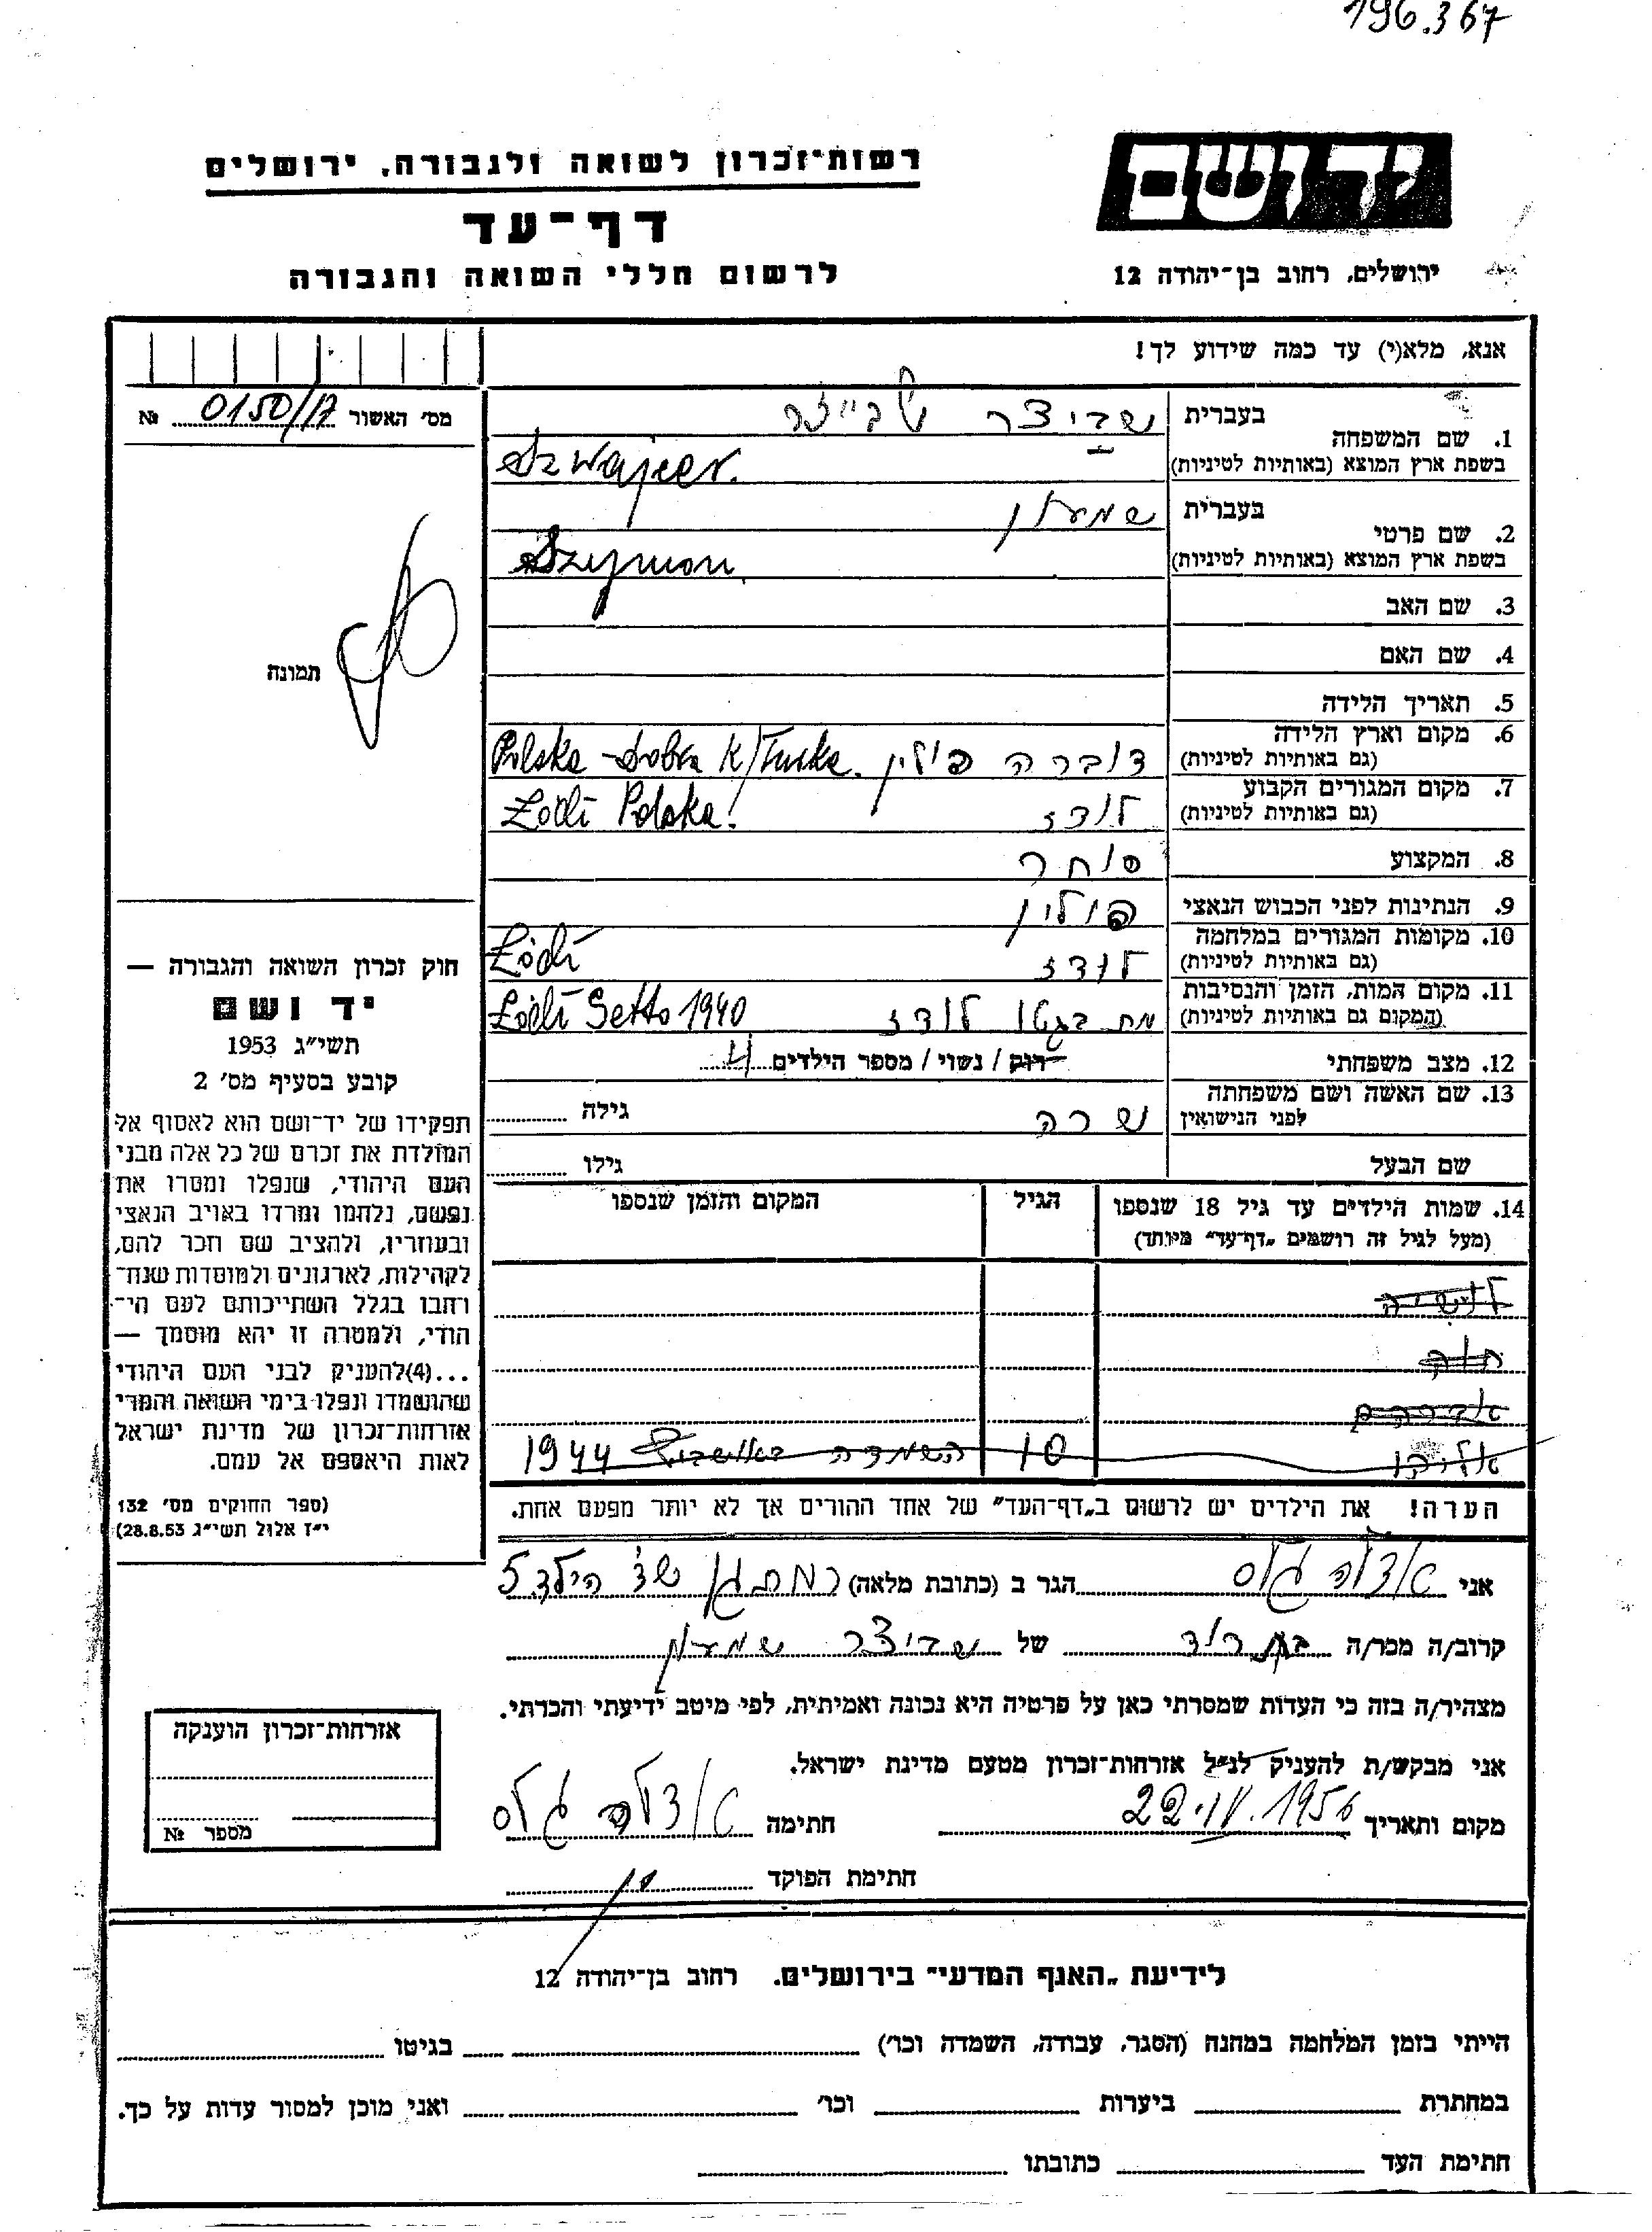 196.367
יד ושם
רשות־זכרון לשואה ולגבורה, ירושלים
דף־עד
לרשום חללי השואה והגבורה
ירושלים, רחוב בן־יהודה 12
אנא, מלא(י) עד כמה שידוע לך!
מס׳ האשור 0150/17 №
תמונה
1. שם המשפחה
בעברית שביצר שבייצר
בשפת ארץ המוצא (באותיות לטיניות) Szwajcer.
2. שם פרטי
בעברית שמעון
בשפת ארץ המוצא (באותיות לטיניות) Szymon
3. שם האב
4. שם האם
5. תאריך הלידה
6. מקום וארץ הלידה
(גם באותיות לטיניות) דוברה פולין Polska - Dobra K/Turka.
7. מקום המגורים הקבוע
(גם באותיות לטיניות) לודז Łódź Polska.
8. המקצוע סוחר
9. הנתינות לפני הכבוש הנאצי פולין
10. מקומות המגורים במלחמה
(גם באותיות לטיניות) לודז Łódź
11. מקום המות, הזמן והנסיבות
(המקום גם באותיות לטיניות) מת בגטו לודז Łódź Getto 1940
12. מצב משפחתי רוק / נשוי / מספר הילדים 4
13. שם האשה ושם משפחתה
לפני הנישואין שרה גילה
שם הבעל גילו
14. שמות הילדים עד גיל 18 שנספו הגיל המקום והזמן שנספו
(מעל לגיל זה רושמים „דף־עד״ מיוחד)
חוה
אברהם
10 השמדה באושביץ 1944
הערה! את הילדים יש לרשום ב„דף־העד״ של אחד ההורים אך לא יותר מפעם אחת.
חוק זכרון השואה והגבורה —
יד ושם
תשי״ג 1953
קובע בסעיף מס׳ 2
תפקידו של יד־ושם הוא לאסוף אל
המולדת את זכרם של כל אלה מבני
העם היהודי, שנפלו ומסרו את
נפשם, נלחמו ומרדו באויב הנאצי
ובעוזריו, ולהציב שם וזכר להם,
לקהילות, לארגונים ולמוסדות שנח־
רבו בגלל השתייכותם לעם הי־
הודי, ולמטרה זו יהא מוסמך —
...(4)להעניק לבני העם היהודי
שהושמדו ונפלו בימי השואה והמרי
אזרחות־זכרון של מדינת ישראל
לאות היאספם אל עמם.
(ספר החוקים מס׳ 132
י״ז אלול תשי״ג 28.8.53)
אני אדלה גלס הגר ב (כתובת מלאה) רמת גן שד הילד 5
קרוב/ה מכר/ה בת דוד של שביצר שמעון
מצהיר/ה בזה כי העדות שמסרתי כאן על פרטיה היא נכונה ואמיתית, לפי מיטב ידיעתי והכרתי.
אני מבקש/ת להעניק לנ״ל אזרחות־זכרון מטעם מדינת ישראל.
מקום ותאריך 22.IV.1956 חתימה אדלה גלס
חתימת הפוקד
אזרחות־זכרון הוענקה
מספר №
לידיעת „האגף המדעי״ בירושלים. רחוב בן־יהודה 12
הייתי בזמן המלחמה במחנה (הסגר, עבודה, השמדה וכו׳) בגיטו
במחתרת ביערות וכו׳ ואני מוכן למסור עדות על כך.
חתימת העד כתובתו